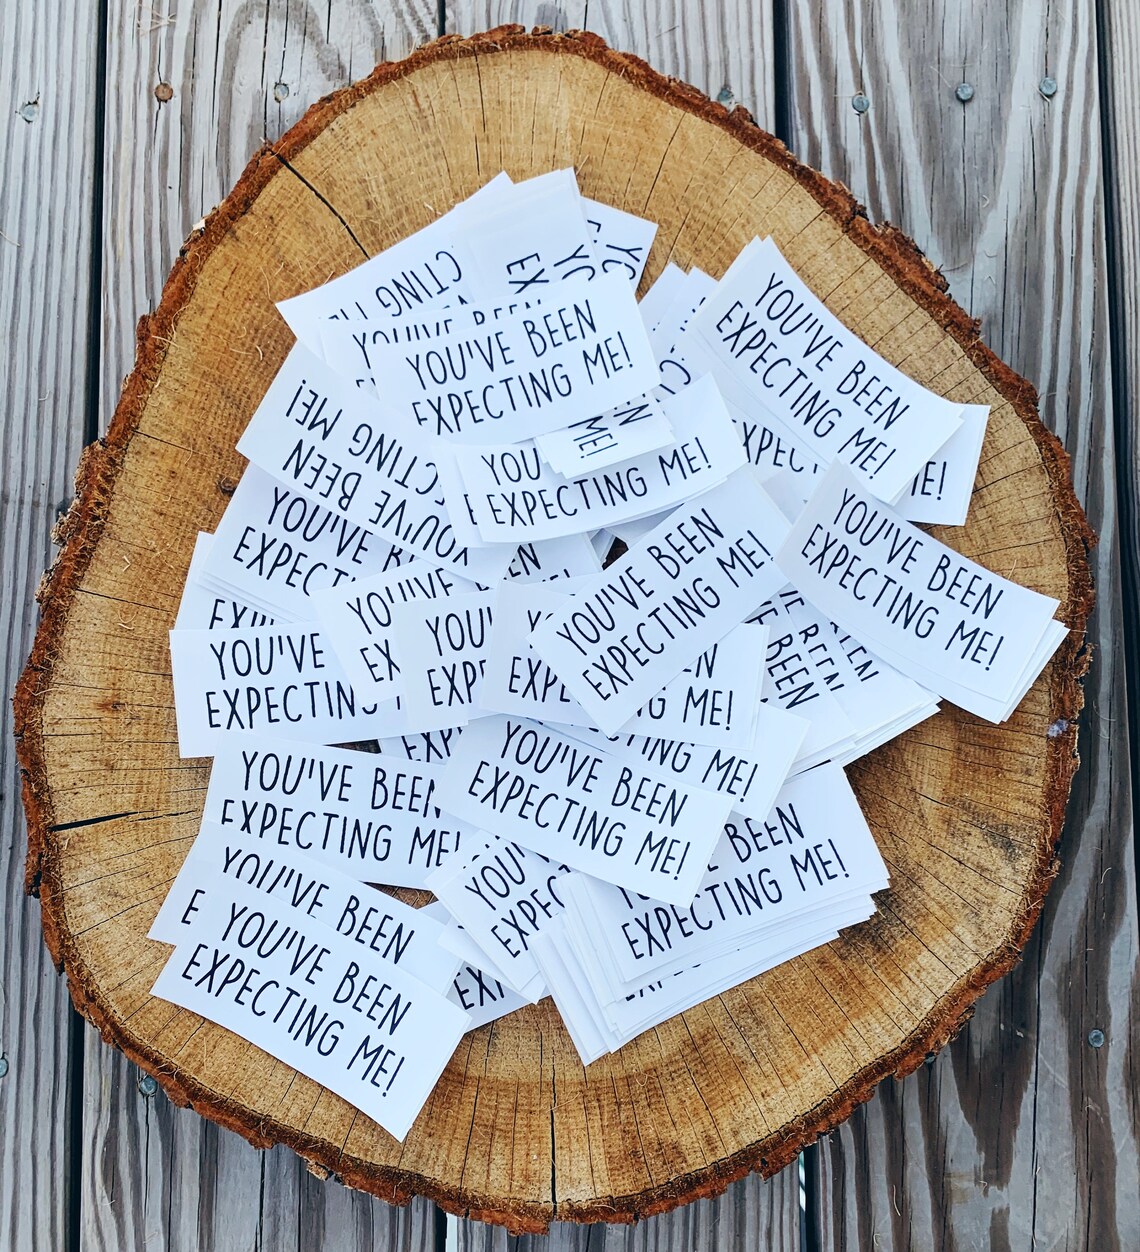 YOU'VE BEEN
EXPECTING ME!
YOU'VE BEEN
EXPECTING ME!
YOU'VE BEEN
ME!
EXPECTING ME!
YOU'VE BEEN
EXPECTING ME!
YOU'VE BEEN
EXPECTING ME!
YOU'VE
YOU'VE
ME!
BEEN
YOU'VE BEEN
EXPECTING ME!
ME!
YOU'VE BEEN
EXPECTING ME!
BEEN
EXPECTING ME!
YOU'VE BEEN
YOU'VE BEEN
EXPECTING ME!